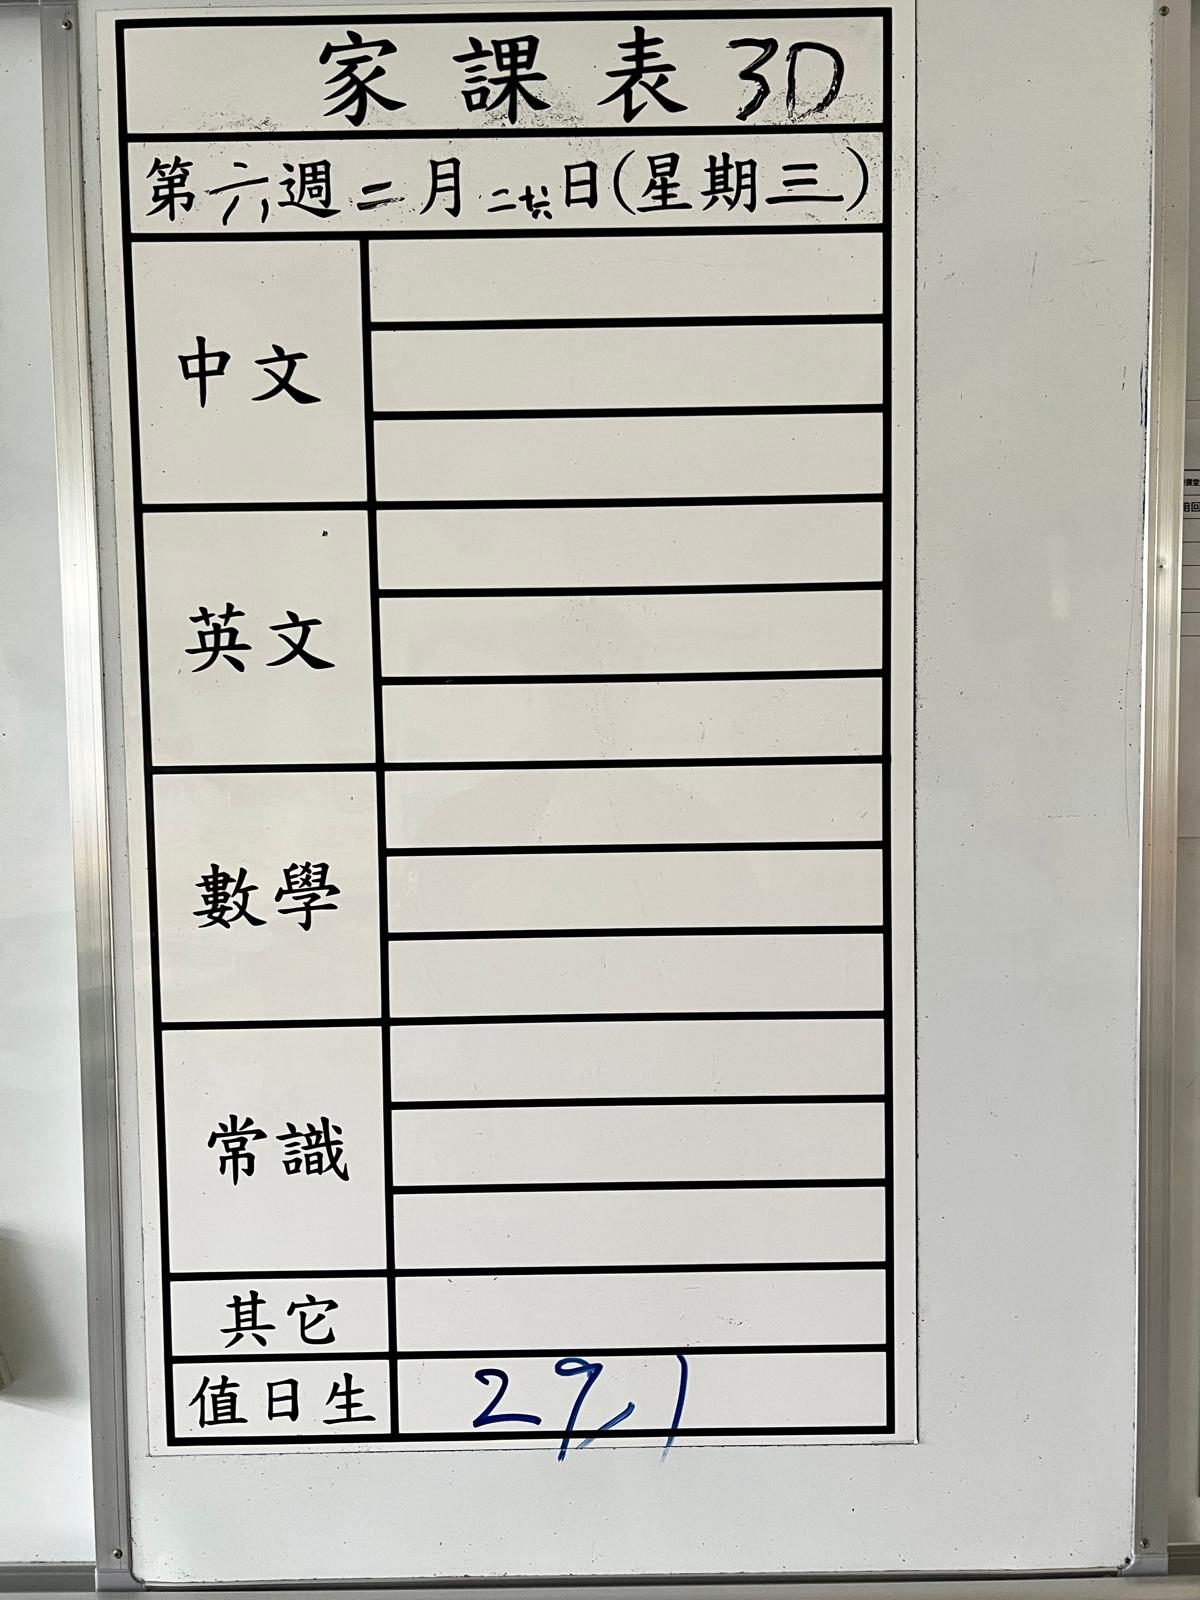 家課表 3D
第六週二月二十六日(星期三)
中文
英文
數學
常識
其它
值日生 29,1